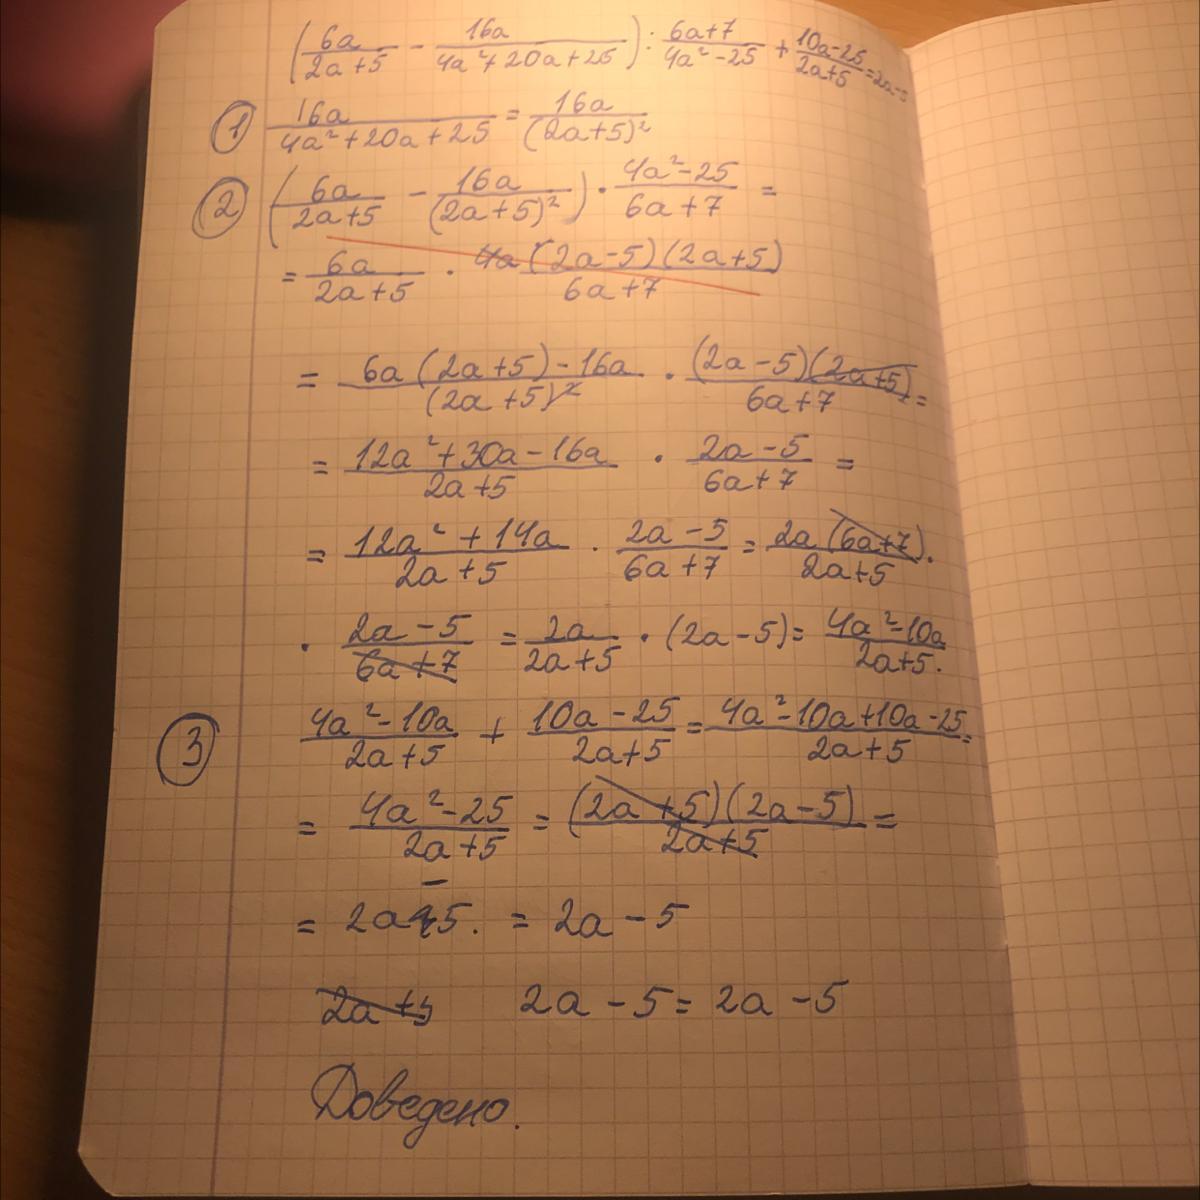 (6a/(2a+5) - 16a/(4a²+20a+25)) : (6a+7)/(4a²-25) + (10a-25)/(2a+5) = 2a-5
① 16a/(4a²+20a+25) = 16a/(2a+5)²
② (6a/(2a+5) - 16a/(2a+5)²) · (4a²-25)/(6a+7) =
= 6a/(2a+5) · 4a(2a-5)(2a+5)/(6a+7)
= (6a(2a+5)-16a)/(2a+5)² · (2a-5)(2a+5)/(6a+7) =
= (12a²+30a-16a)/(2a+5) · (2a-5)/(6a+7) =
= (12a²+14a)/(2a+5) · (2a-5)/(6a+7) = 2a(6a+7)/(2a+5) ·
· (2a-5)/(6a+7) = 2a/(2a+5) · (2a-5) = (4a²-10a)/(2a+5).
③ (4a²-10a)/(2a+5) + (10a-25)/(2a+5) = (4a²-10a+10a-25)/(2a+5) =
= (4a²-25)/(2a+5) = (2a+5)(2a-5)/(2a+5) =
= 2a-5. = 2a-5
2a+5 2a-5=2a-5
Доведено.